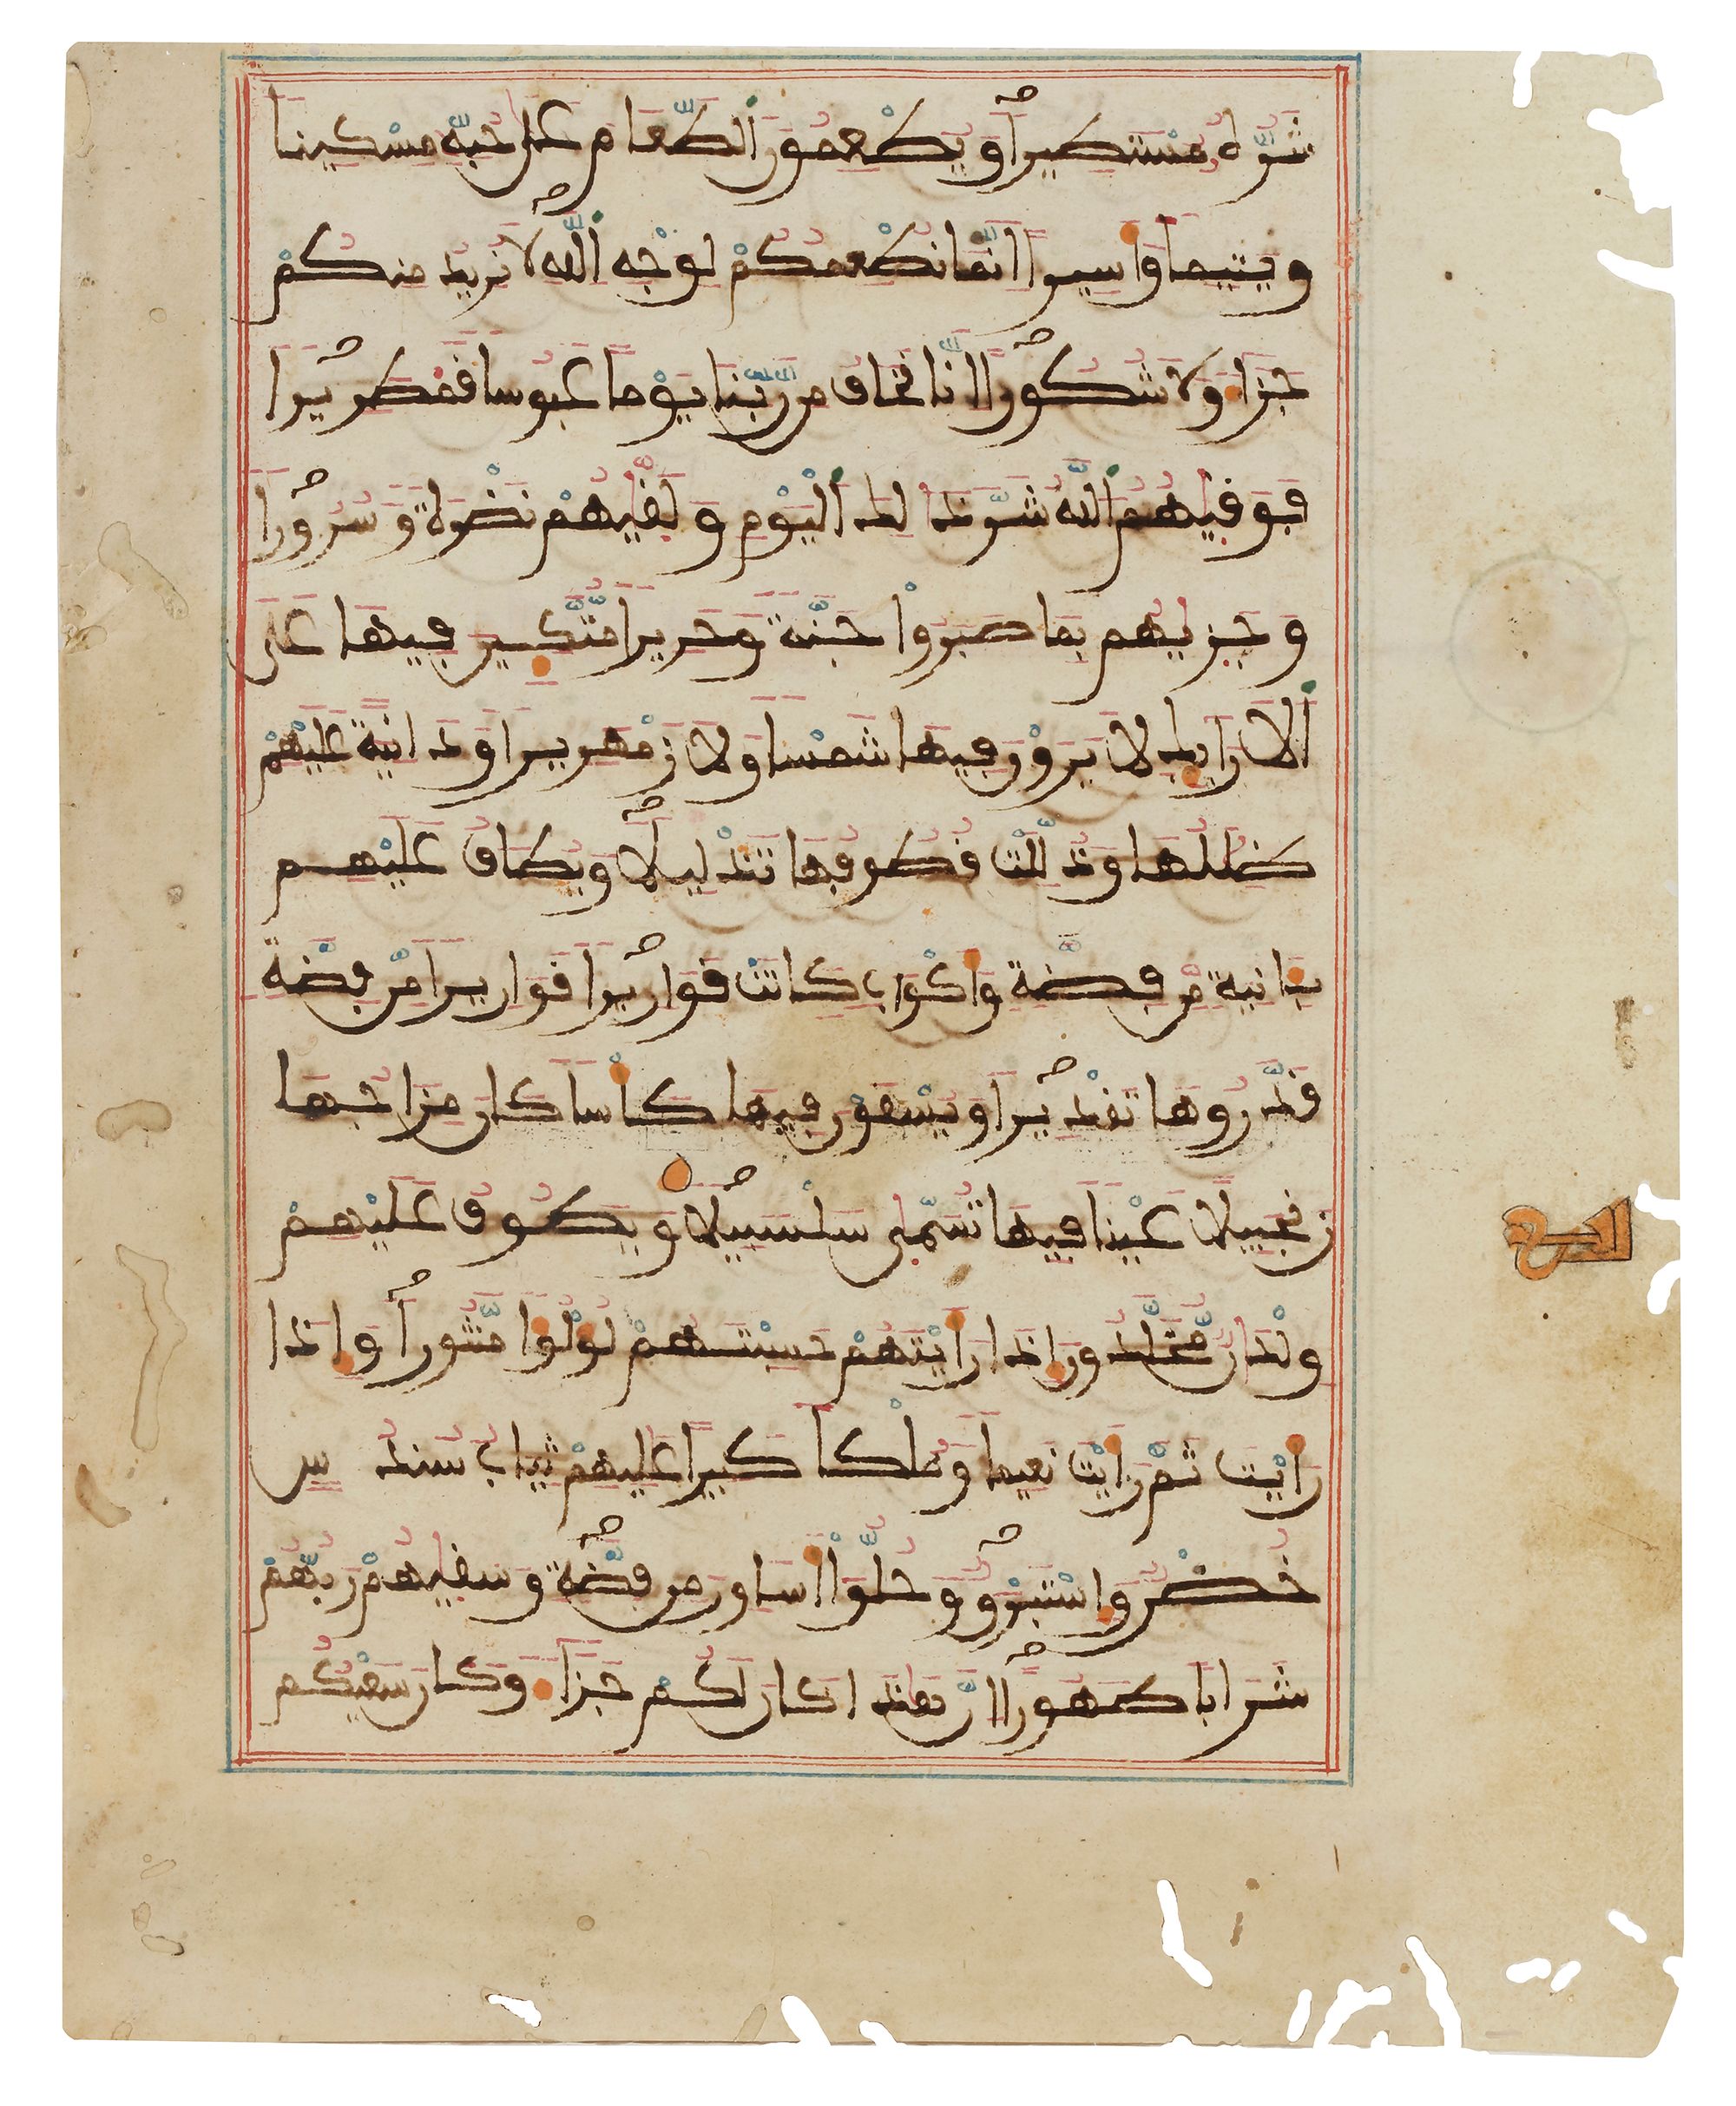 شَرُّهُ مُسْتَطِيرًا وَيُطْعِمُونَ ٱلطَّعَامَ عَلَىٰ حُبِّهِ مِسْكِينًا
وَيَتِيمًا وَأَسِيرًا إِنَّمَا نُطْعِمُكُمْ لِوَجْهِ ٱللَّهِ لَا نُرِيدُ مِنكُمْ
جَزَاءً وَلَا شُكُورًا إِنَّا نَخَافُ مِن رَّبِّنَا يَوْمًا عَبُوسًا قَمْطَرِيرًا
فَوَقَيٰهُمُ ٱللَّهُ شَرَّ ذَٰلِكَ ٱلْيَوْمِ وَلَقَّيٰهُمْ نَضْرَةً وَسُرُورًا
وَجَزَيٰهُم بِمَا صَبَرُوا جَنَّةً وَحَرِيرًا مُّتَّكِـِٔينَ فِيهَا عَلَى
ٱلْأَرَائِكِ لَا يَرَوْنَ فِيهَا شَمْسًا وَلَا زَمْهَرِيرًا وَدَانِيَةً عَلَيْهِمْ
ظِلَٰلُهَا وَذُلِّلَتْ قُطُوفُهَا تَذْلِيلًا وَيُطَافُ عَلَيْهِم
بِـَٔانِيَةٍ مِّن فِضَّةٍ وَأَكْوَابٍ كَانَتْ قَوَارِيرًا قَوَارِيرًا مِّن فِضَّةٍ
قَدَّرُوهَا تَقْدِيرًا وَيُسْقَوْنَ فِيهَا كَأْسًا كَانَ مِزَاجُهَا
زَنجَبِيلًا عَيْنًا فِيهَا تُسَمَّىٰ سَلْسَبِيلًا وَيَطُوفُ عَلَيْهِمْ
وِلْدَٰنٌ مُّخَلَّدُونَ إِذَا رَأَيْتَهُمْ حَسِبْتَهُمْ لُؤْلُؤًا مَّنثُورًا وَإِذَا
رَأَيْتَ ثَمَّ رَأَيْتَ نَعِيمًا وَمُلْكًا كَبِيرًا عَٰلِيهِمْ ثِيَابُ سُندُسٍ
خُضْرٌ وَإِسْتَبْرَقٌ وَحُلُّوا أَسَاوِرَ مِن فِضَّةٍ وَسَقَيٰهُمْ رَبُّهُمْ
شَرَابًا طَهُورًا إِنَّ هَٰذَا كَانَ لَكُمْ جَزَاءً وَكَانَ سَعْيُكُم